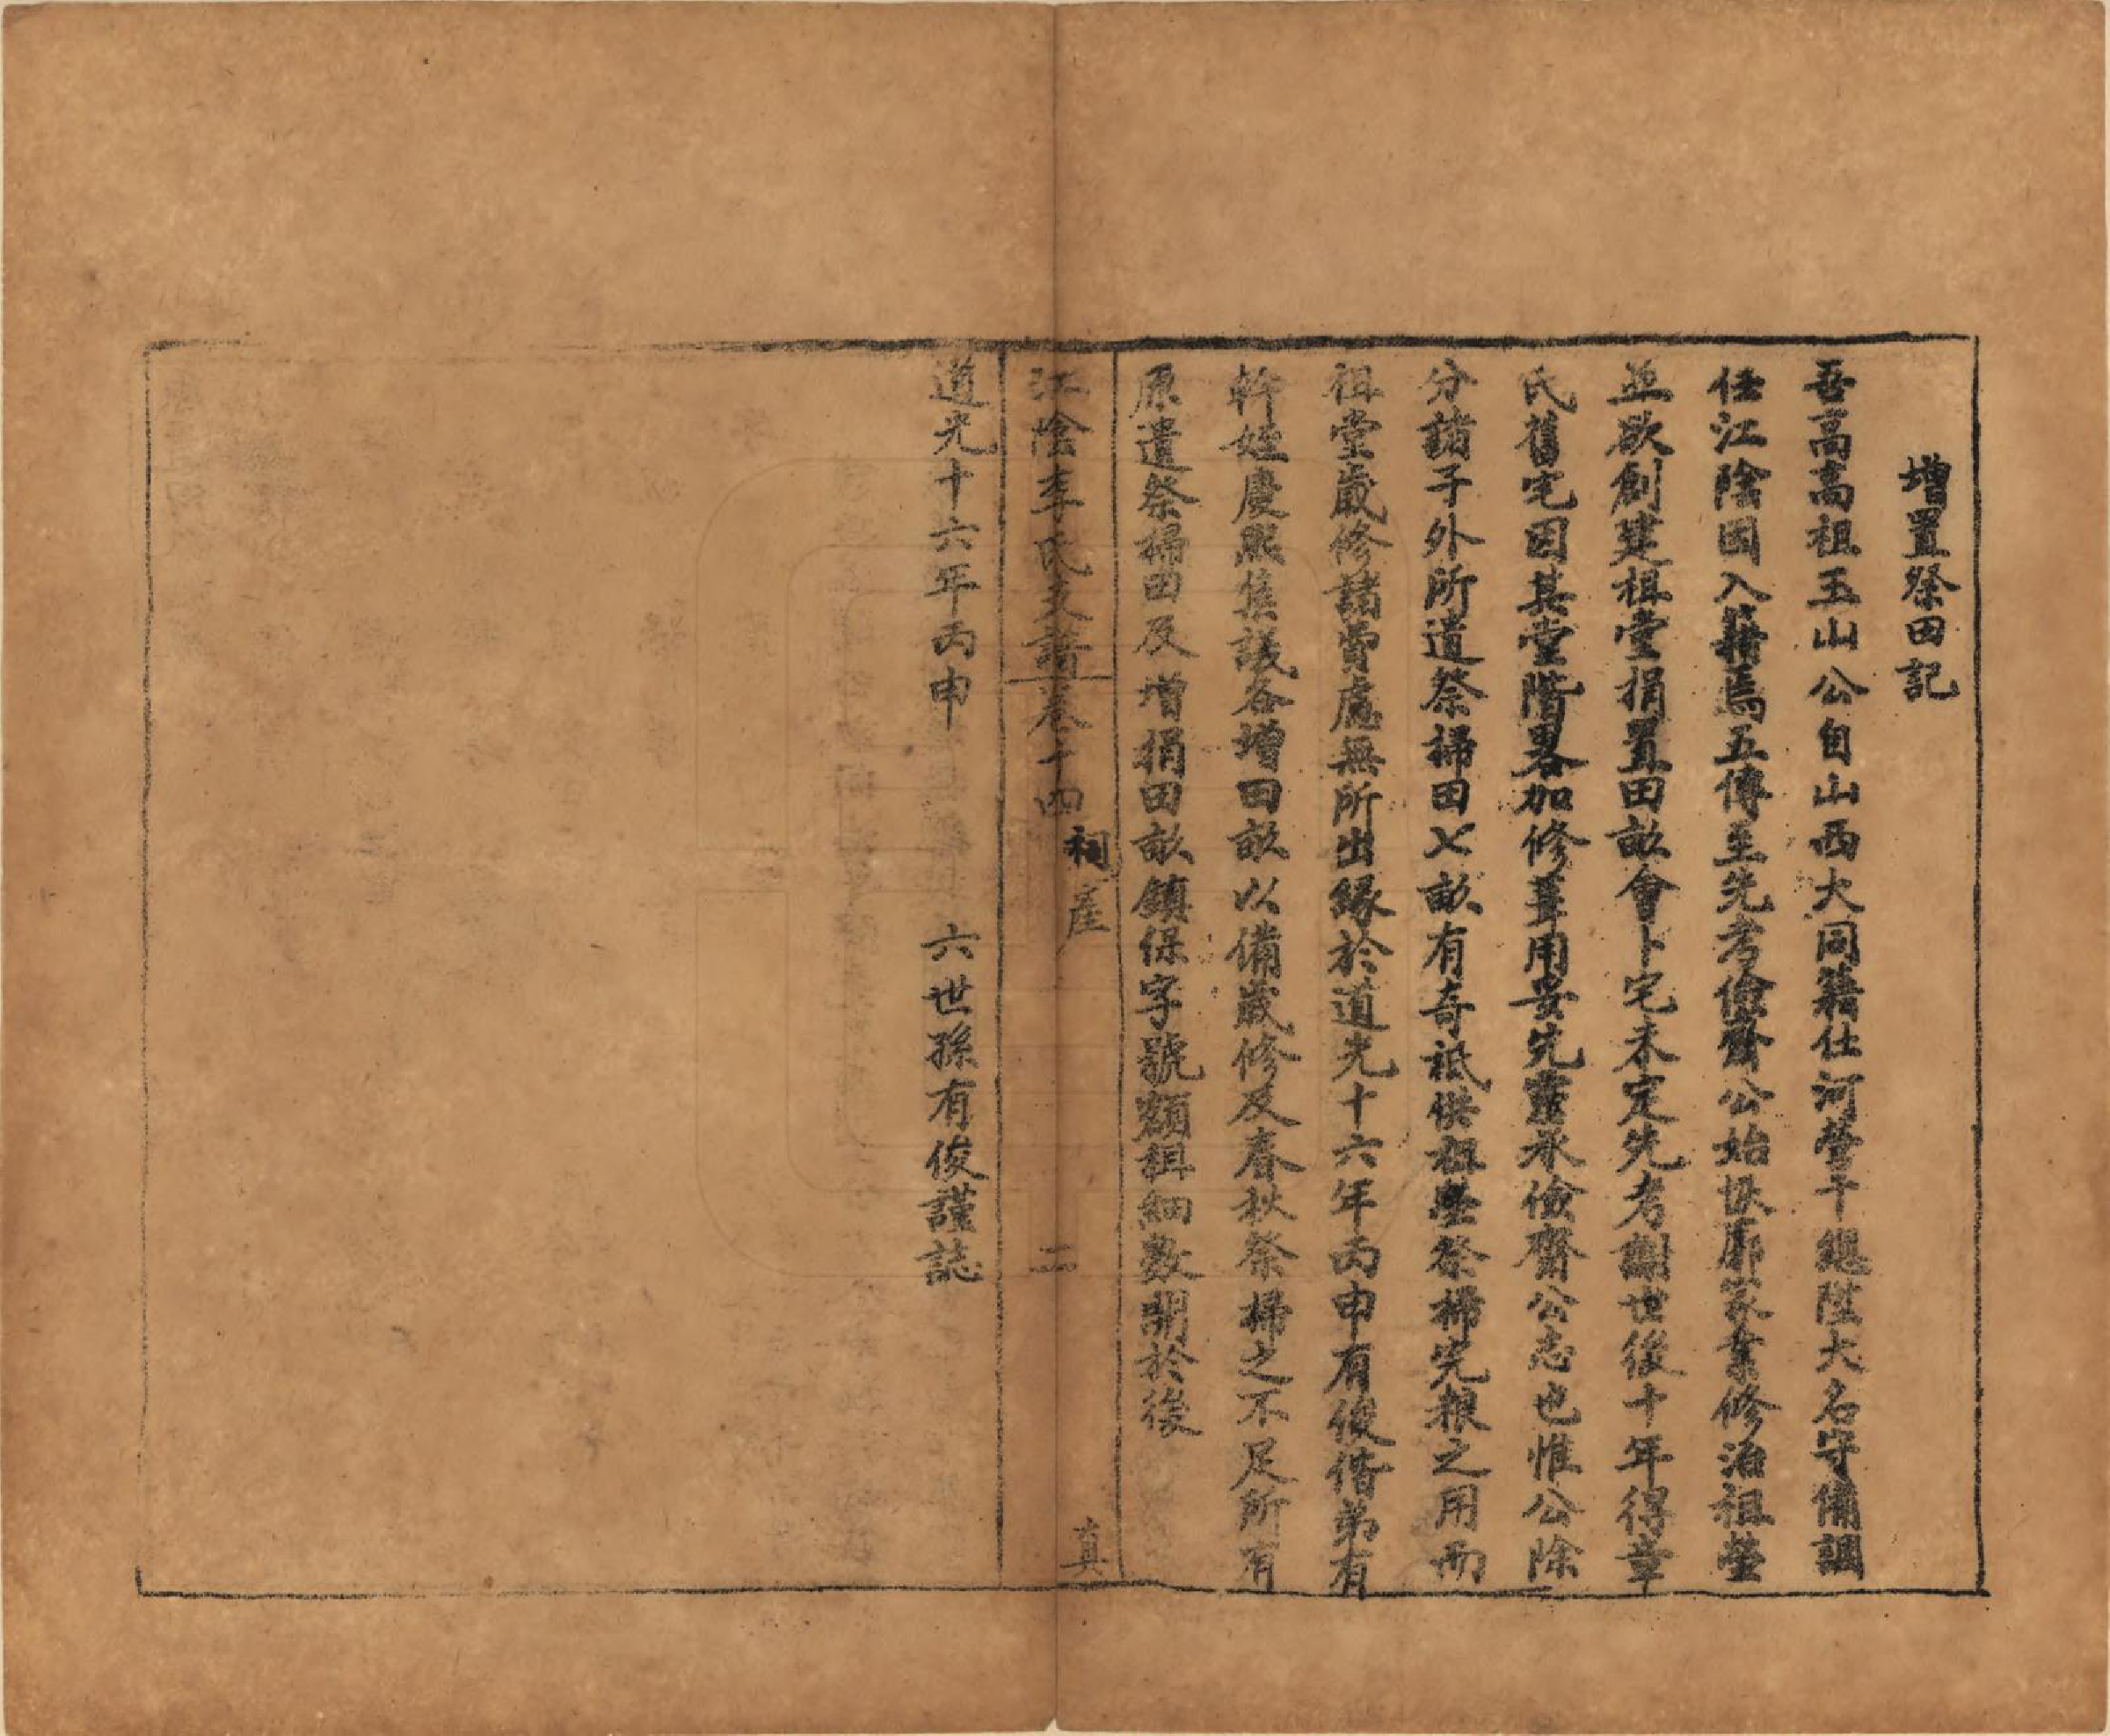 增置祭田記
吾高高祖玉山公自山西大同籍仕河營千總陞大名守備調
任江陰因入籍焉五傳至先考儉齋公始恢廓家業修治祖塋
並欲創建祖堂捐置田畝會卜宅未定先考謝世後十年得章
氏舊宅因其堂階畧加修葺用安先靈承儉齋公志也惟公除
分諸子外所遺祭掃田七畝有奇祗供祖塋祭掃完粮之用而
祖堂歲修諸費處無所出緣於道光十六年丙申有俊偕弟有
幹姪慶熙集議各增田畝以備歲修及春秋祭掃之不足所有
原遺祭掃田及增捐田畝鎮保字號額租細數開於後
江陰李氏支譜卷十四 祠產 二 真
道光十六年丙申 六世孫有俊謹誌